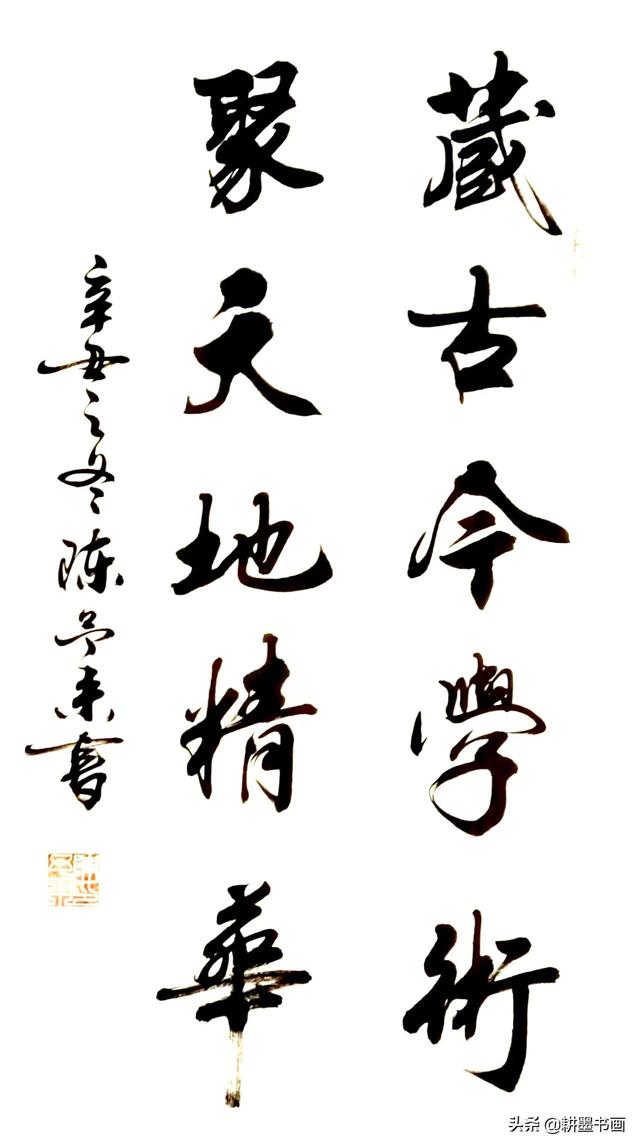 藏古今學術
聚天地精華
辛丑之冬陈書
头条 @耕墨书画